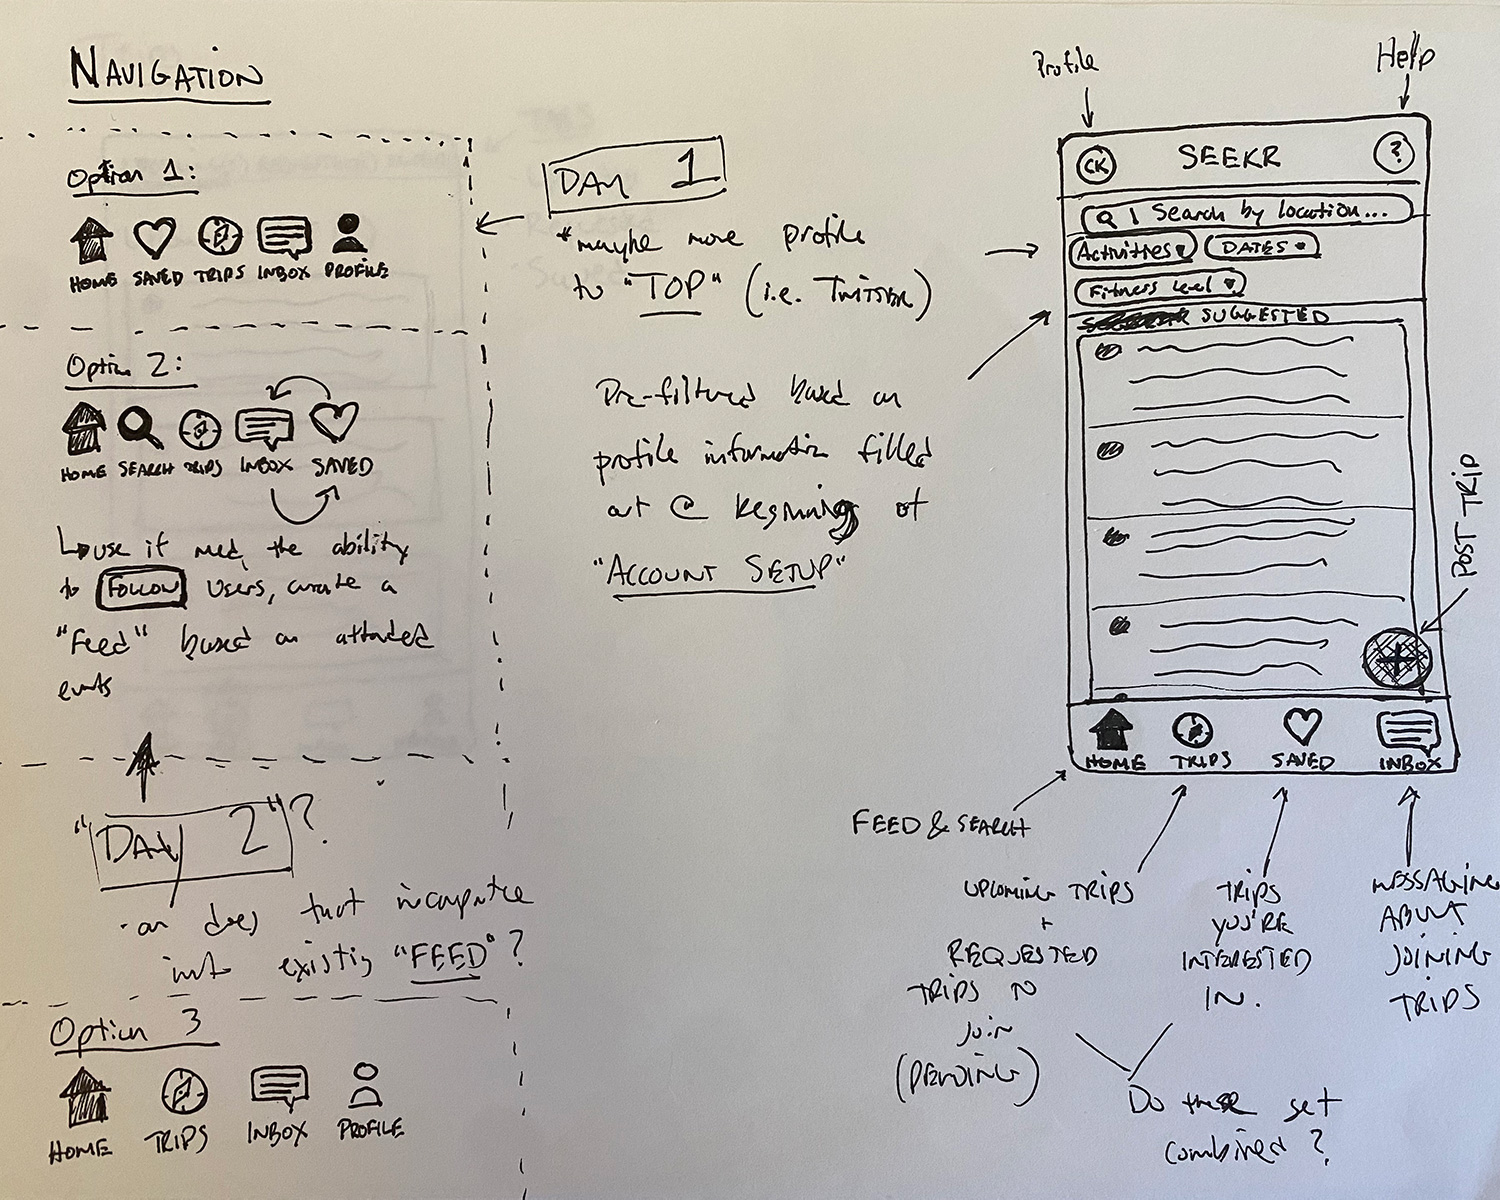 NAVIGATION
Option 1:
HOME SAVED TRIPS INBOX PROFILE
Option 2:
HOME SEARCH TRIPS INBOX SAVED
use if need the ability
to FOLLOW users, curate a
"Feed" based on attended
events
"DAY 2"?
- or does that incorporate
into existing "FEED"?
Option 3
HOME TRIPS INBOX PROFILE
DAY 1
*maybe move profile
to "TOP" (i.e. TWITTER)
Pre-filtered based on
profile information filled
out @ beginning of
"ACCOUNT SETUP"
Profile
Help
CK SEEKR ?
Search by location...
Activities DATES
Fitness level
SUGGESTED
POST TRIP
+
HOME TRIPS SAVED INBOX
FEED & SEARCH
UPCOMING TRIPS
+
REQUESTED
TRIPS TO
JOIN
(PENDING)
TRIPS
YOU'RE
INTERESTED
IN.
MESSAGING
ABOUT
JOINING
TRIPS
Do these get
combined?